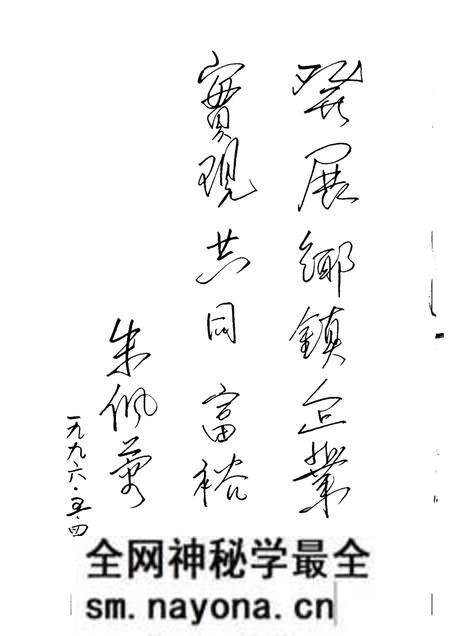 發展鄉鎮企業
實現共同富裕
朱佩
一九九六·五·四
全网神秘学最全
sm.nayona.cn